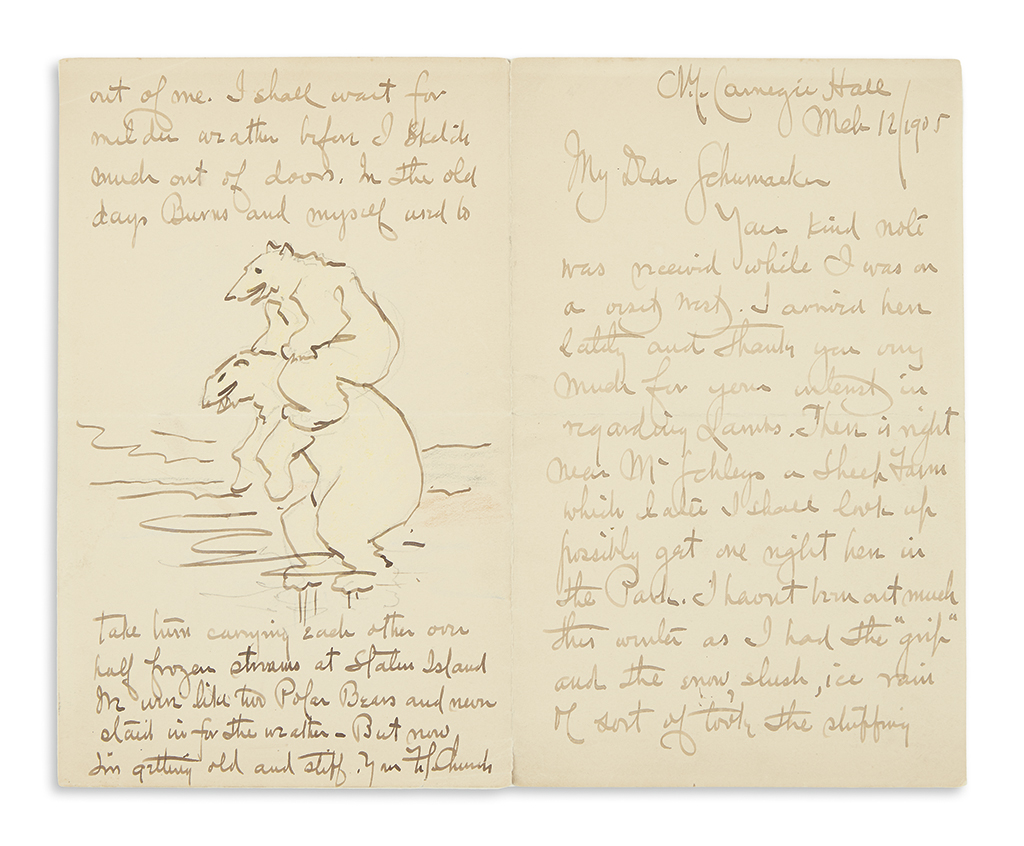 Carnegie Hall
Mch 12/1905
My Dear Schumacker
Your kind note
was received while I was on
a visit West. I arrived here
lately and thank you very
much for your interest in
regarding Lambs. There is right
near McSchleys a Sheep Farm
which later I shall look up
possibly get one right here in
the Park. I havnt been out much
this winter as I had the "grip"
and the snow, slush, ice rain
sort of took the stuffing
out of me. I shall wait for
milder weather before I sketch
much out of doors. In the old
days Burns and myself used to
take turn carrying each other over
half frozen streams at Staten Island
We were like two Polar Bears and never
staid in for the weather - But now
I'm getting old and stiff. Your FS Church